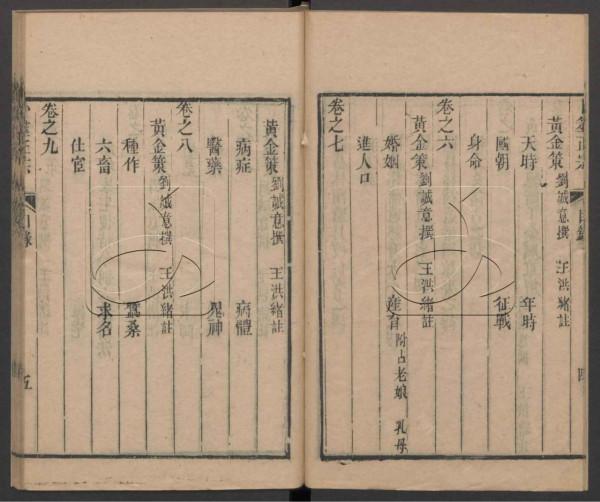 黃金策 劉誠意撰 王洪緒註
天時 年時
國朝 征戰
身命
卷之六
黃金策 劉誠意撰 王洪緒註
婚姻 產育 附占老娘 乳母
進人口
卷之七
黃金策 劉誠意撰 王洪緒註
病症 病體
醫藥 鬼神
卷之八
黃金策 劉誠意撰 王洪緒註
種作 蠶桑
六畜 求名
仕宦
卷之九
目錄
五